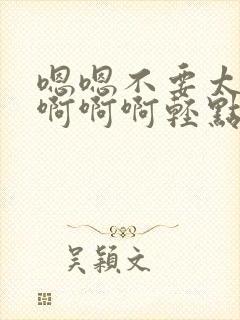 嗯嗯不要太
啊啊啊輕點
吴穎文